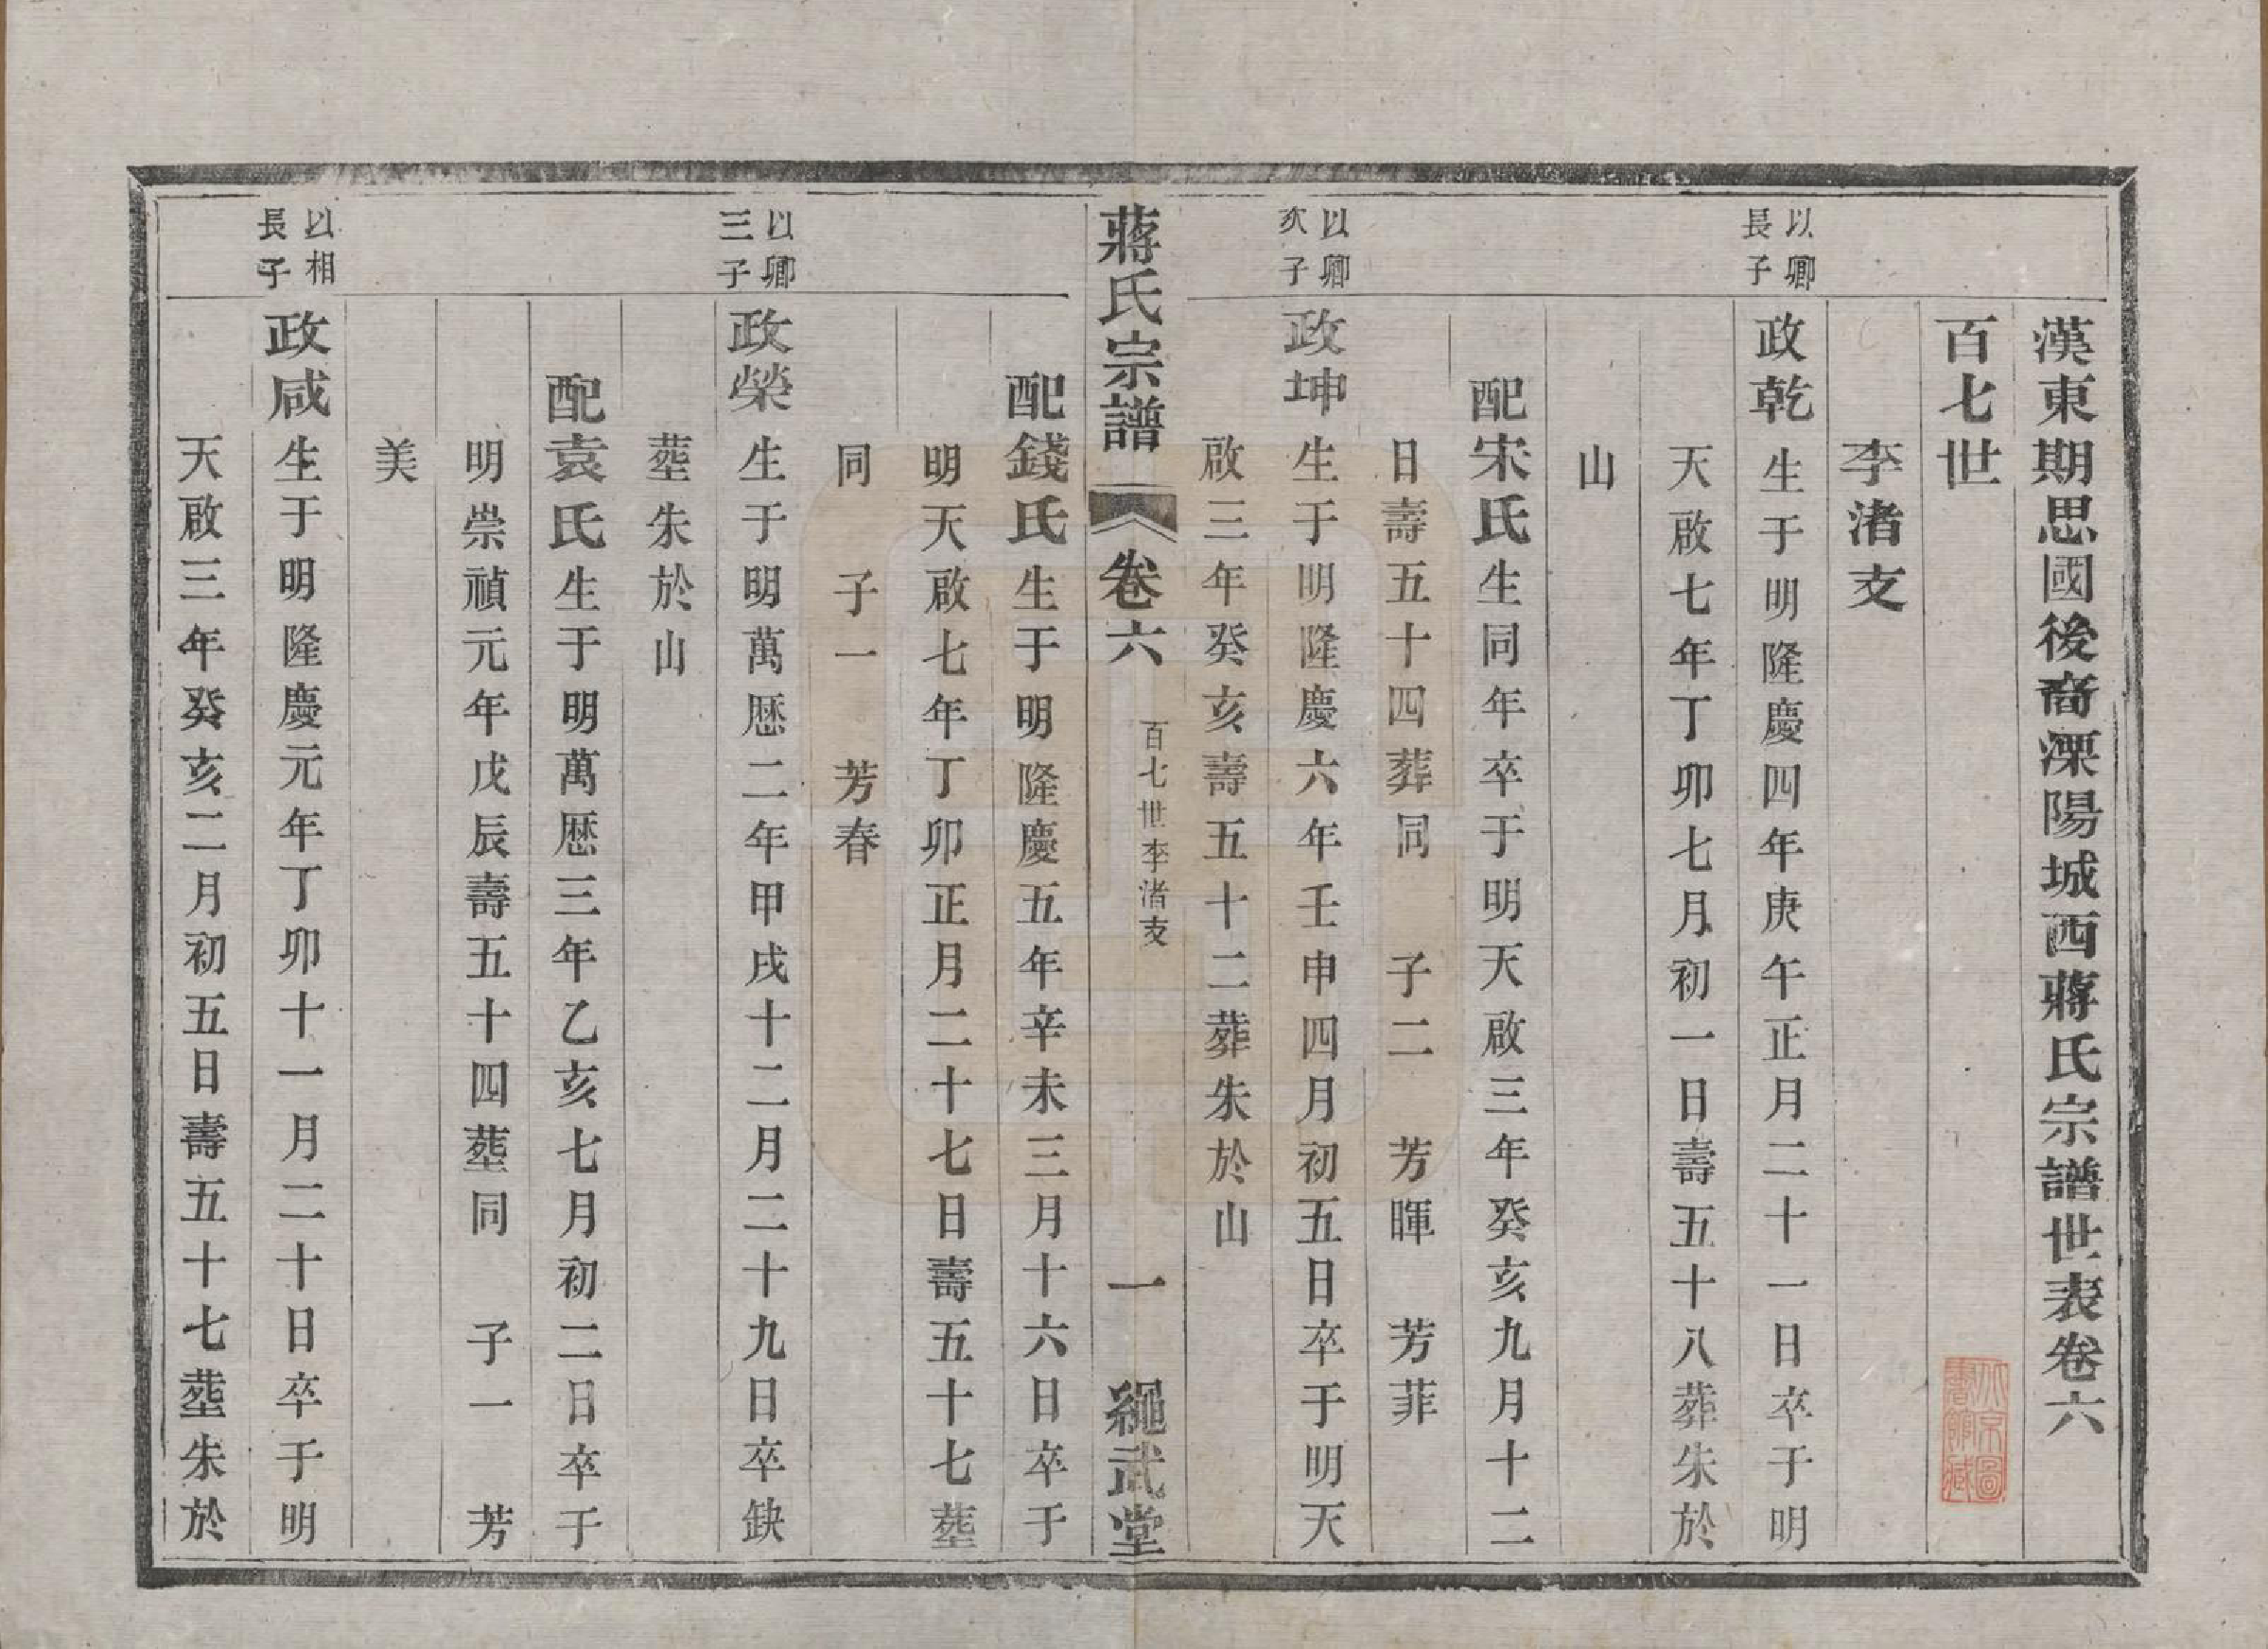 漢東期思國後裔溧陽城西蔣氏宗譜世表卷六
百七世
李渚支
以卿
長子
政乾生于明隆慶四年庚午正月二十一日卒于明
天啟七年丁卯七月初一日壽五十八葬朱於
山
配宋氏生同年卒于明天啟三年癸亥九月十二
日壽五十四葬同 子二 芳暉 芳菲
以卿
次子
政坤生于明隆慶六年壬申四月初五日卒于明天
啟三年癸亥壽五十二葬朱於山
蔣氏宗譜 卷六 百七世李渚支 一 繩武堂
配錢氏生于明隆慶五年辛未三月十六日卒于
明天啟七年丁卯正月二十七日壽五十七塟
同 子一 芳春
以卿
三子
政榮生于明萬歷二年甲戌十二月二十九日卒缺
塟朱於山
配袁氏生于明萬歷三年乙亥七月初二日卒于
明崇禎元年戊辰壽五十四塟同 子一 芳
美
以相
長子
政咸生于明隆慶元年丁卯十一月二十日卒于明
天啟三年癸亥二月初五日壽五十七塟朱於